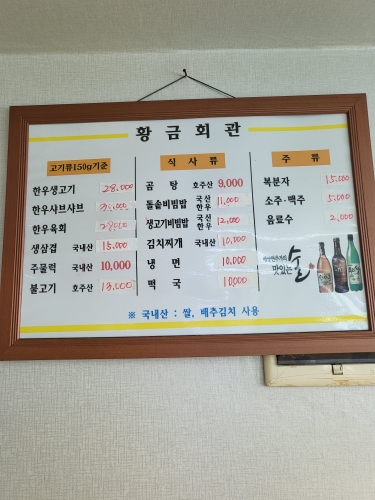 황금회관
고기류150g기준
한우생고기 28,000
한우샤브샤브
한우육회 28000
생삼겹 국내산 15,000
주물럭 국내산 10,000
불고기 호주산 13,000
식사류
곰탕 호주산 9,000
돌솥비빔밥 국산 한우 11,000
생고기비빔밥 국산 한우 12,000
김치찌개 국내산 10,000
냉면 10,000
떡국 10000
주류
복분자 15,000
소주·맥주 5,000
음료수 2,000
맛있는 술
※ 국내산 : 쌀, 배추김치 사용